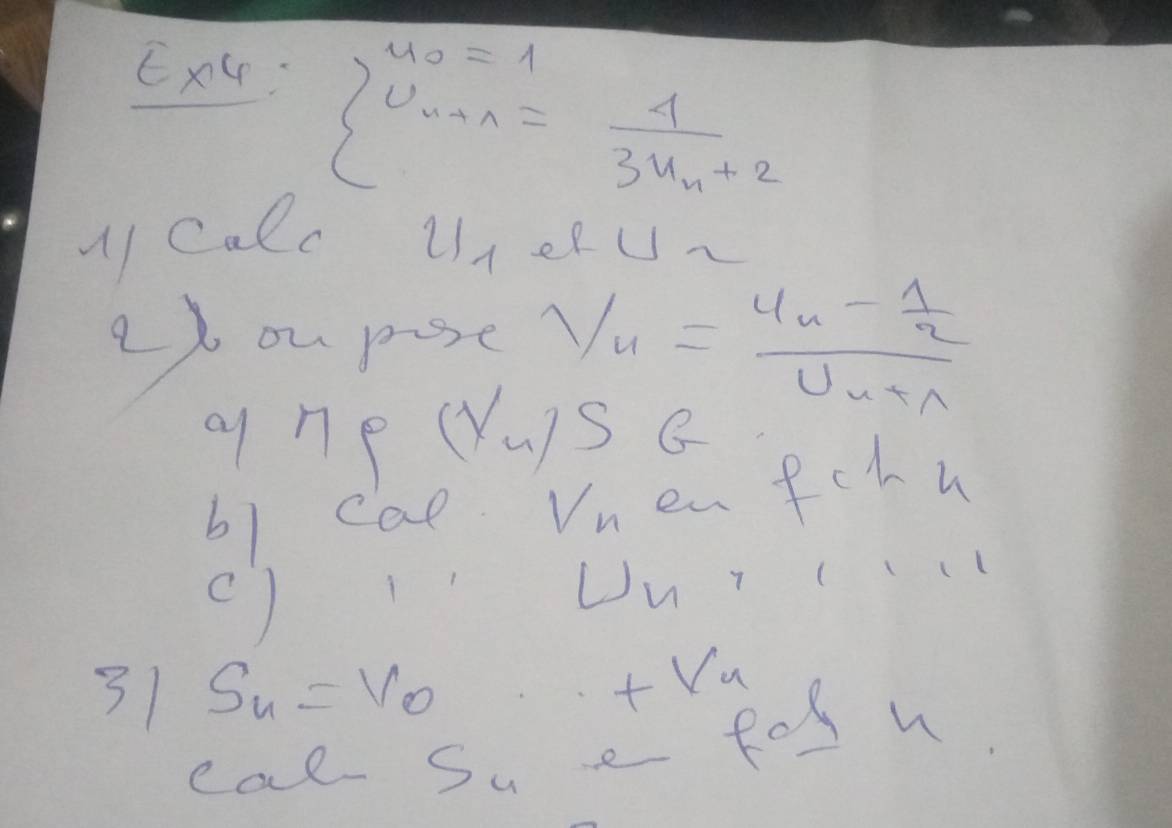 Ex4: { u0 = 1
Un+1 = 1 / (3un + 2)
1) Calc U1 et U2
2) on pose Vn = (un - 1/2) / (Un+1)
a) Mq (Vn) S G
b) cal. Vn en fct n
c) '' Un '' '' ''
3) Sn = V0 . . . + Vn
cal Sn en fct n.